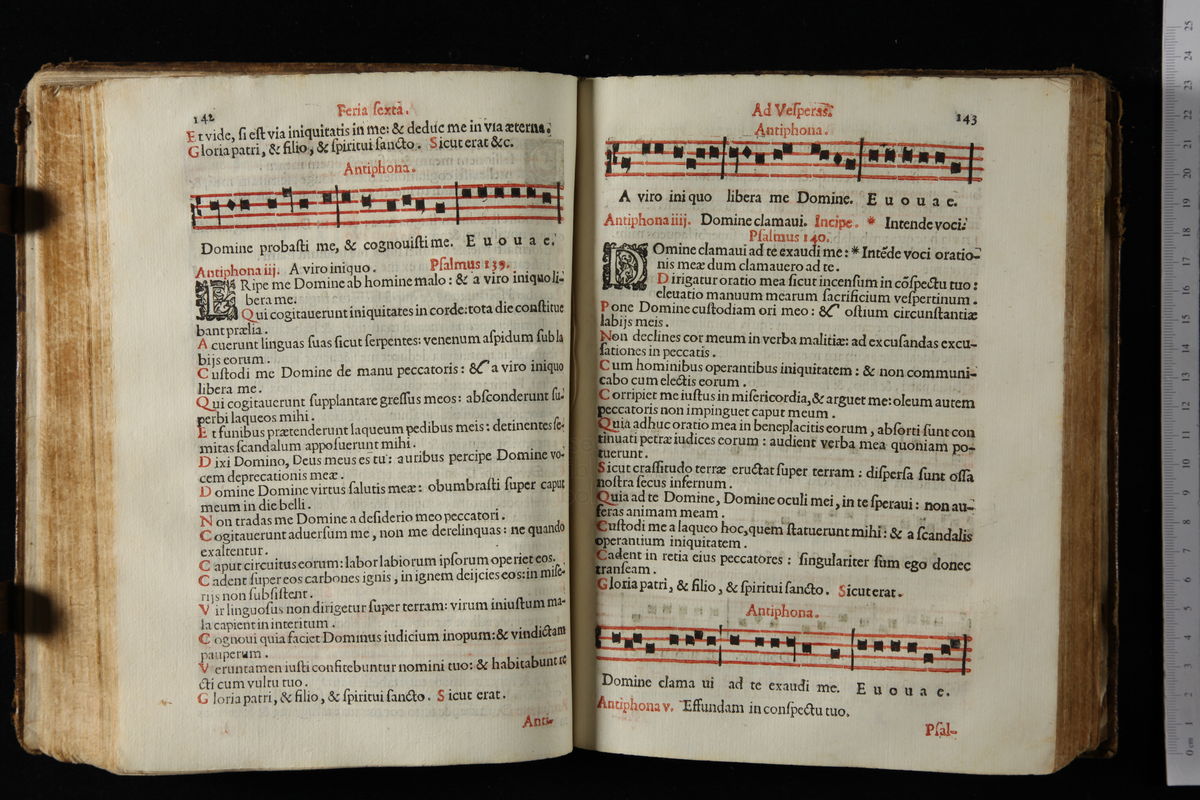 142
Feria sexta.
Et vide, si est via iniquitatis in me: & deduc me in via æterna.
Gloria patri, & filio, & spiritui sancto. Sicut erat &c.
Antiphona.
Domine probasti me, & cognouisti me. E u o u a e.
Antiphona iij. A viro iniquo. Psalmus 139.
ERipe me Domine ab homine malo: & a viro iniquo li-
bera me.
Qui cogitauerunt iniquitates in corde: tota die constitue
bant prælia.
Acuerunt linguas suas sicut serpentes: venenum aspidum sub la
bijs eorum.
Custodi me Domine de manu peccatoris: & a viro iniquo
libera me.
Qui cogitauerunt supplantare gressus meos: absconderunt su-
perbi laqueos mihi.
Et funibus prætenderunt laqueum pedibus meis: detinentes se-
mitas scandalum apposuerunt mihi.
Dixi Domino, Deus meus es tu: auribus percipe Domine vo-
cem deprecationis meæ.
Domine Domine virtus salutis meæ: obumbrasti super caput
meum in die belli.
Non tradas me Domine a desiderio meo peccatori.
Cogitauerunt aduersum me, non me derelinquas: ne quando
exaltentur.
Caput circuitus eorum: labor labiorum ipsorum operiet eos.
Cadent super eos carbones ignis, in ignem deijcies eos: in mise-
rijs non subsistent.
Vir linguosus non dirigetur super terram: virum iniustum ma-
la capient in interitum.
Cognoui quia faciet Dominus iudicium inopum: & vindictam
pauperum.
Veruntamen iusti confitebuntur nomini tuo: & habitabunt re
cti cum vultu tuo.
Gloria patri, & filio, & spiritui sancto. Sicut erat.
Anti-
Ad Vesperas.
143
Antiphona.
A viro iniquo libera me Domine. E u o u a e.
Antiphona iiij. Domine clamaui. Incipe. * Intende voci.
Psalmus 140.
DOmine clamaui ad te exaudi me: * Intēde voci oratio-
nis meæ dum clamauero ad te.
Dirigatur oratio mea sicut incensum in cōspectu tuo:
eleuatio manuum mearum sacrificium vespertinum.
Pone Domine custodiam ori meo: & ostium circunstantiæ
labijs meis.
Non declines cor meum in verba malitiæ: ad excusandas excu-
sationes in peccatis.
Cum hominibus operantibus iniquitatem: & non communi-
cabo cum electis eorum.
Corripiet me iustus in misericordia, & arguet me: oleum autem
peccatoris non impinguet caput meum.
Quia adhuc oratio mea in beneplacitis eorum, absorti sunt con
tinuati petræ iudices eorum: audient verba mea quoniam po-
tuerunt.
Sicut crassitudo terræ eructat super terram: dispersa sunt ossa
nostra secus infernum.
Quia ad te Domine, Domine oculi mei, in te speraui: non au-
feras animam meam.
Custodi me a laqueo hoc, quem statuerunt mihi: & a scandalis
operantium iniquitatem.
Cadent in retia eius peccatores: singulariter sum ego donec
transeam.
Gloria patri, & filio, & spiritui sancto. Sicut erat.
Antiphona.
Domine clama ui ad te exaudi me. E u o u a e.
Antiphona v. Effundam in conspectu tuo.
Psal-